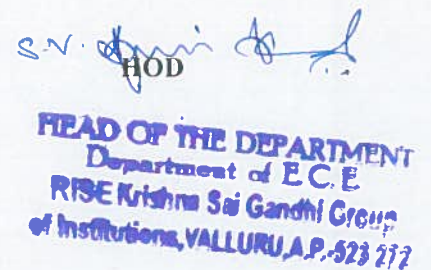 S.V.
HOD
HEAD OF THE DEPARTMENT
Department of E.C.E
RISE Krishna Sai Gandhi Group
of Institutions, VALLURU, A.P.-523 272